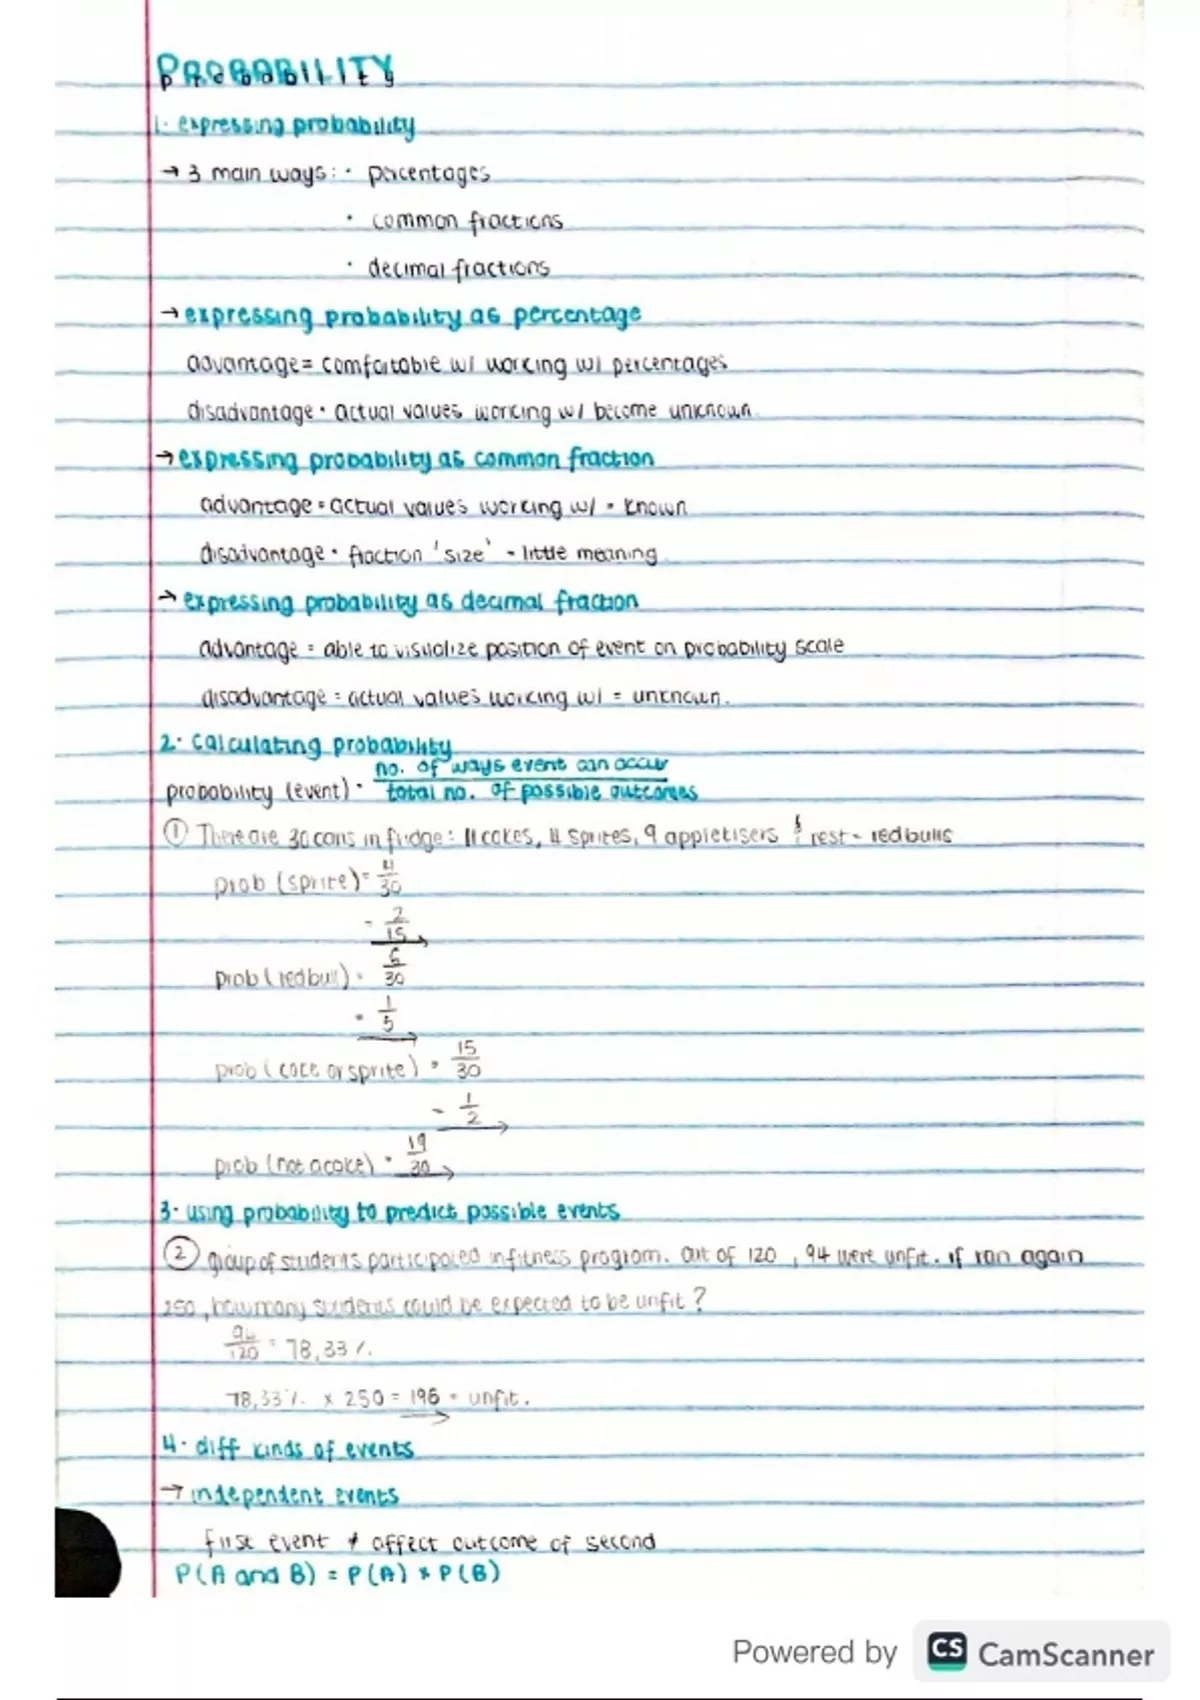 PROBABILITY
1. expressing probability
→ 3 main ways: · percentages
· common fractions
· decimal fractions
→ expressing probability as percentage
advantage = comfortable w/ working w/ percentages
disadvantage · actual values working w/ become unknown.
→ expressing probability as common fraction
advantage = actual values working w/ = known
disadvantage · fraction 'size' - little meaning
→ expressing probability as decimal fraction
advantage = able to visualize position of event on probability scale
disadvantage = actual values working w/ = unknown.
2. calculating probability
no. of ways event can occur
probability (event) = total no. of possible outcomes
① There are 30 cans in fridge: 11 cokes, 4 sprites, 9 appletisers & rest - redbulls
prob (sprite) = 4/30
= 2/15
prob (redbull) = 6/30
= 1/5
prob (coke or sprite) = 15/30
= 1/2
prob (not a coke) = 19/30
3. using probability to predict possible events
② group of students participated in fitness program. Out of 120, 94 were unfit. if ran again
250, how many students could be expected to be unfit?
94/120 = 78,33%.
78,33% x 250 = 196 = unfit.
4. diff kinds of events
→ independent events
first event ≠ affect outcome of second
P(A and B) = P(A) × P(B)
Powered by CS CamScanner